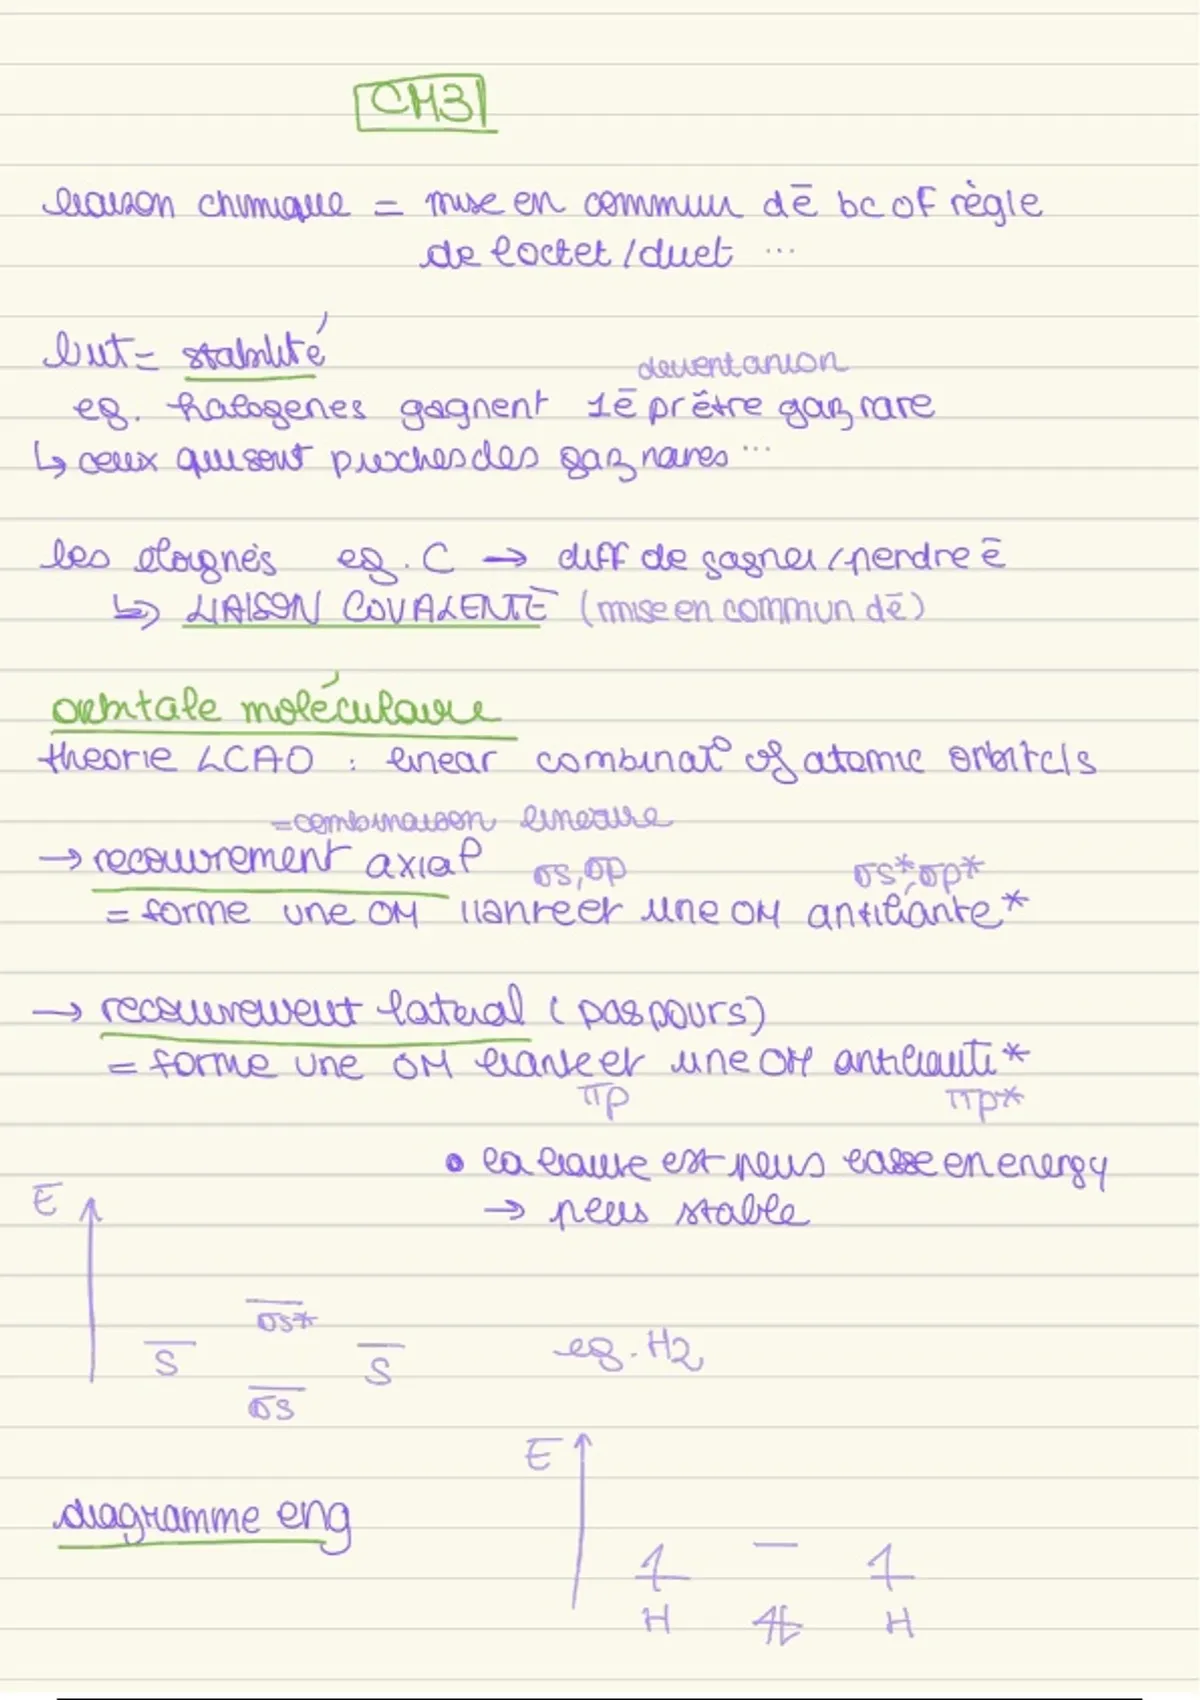 CM3
liaison chimique = mise en commun d'ē bc of règle
de l'octet / duet ...
but = stabilité
devient anion
eg. halogènes gagnent 1ē pr être gaz rare
↳ ceux qui sont proches des gaz rares ...
les éloignés eg. C → diff de gagner / perdre ē
↳ LIAISON COVALENTE (mise en commun d'ē)
orbitale moléculaire
theorie LCAO : linear combinat° of atomic orbitals
= combinaison linéaire
→ recouvrement axial σs, σp σs*, σp*
= forme une OM liante et une OM antiliante *
→ recouvrement lateral (pas pour s)
= forme une OM liante et une OM antiliante *
πp πp*
• la liante est plus basse en energy
→ plus stable
E
σs*
S S
σs
eg. H2
E
diagramme eng
1 1
H H